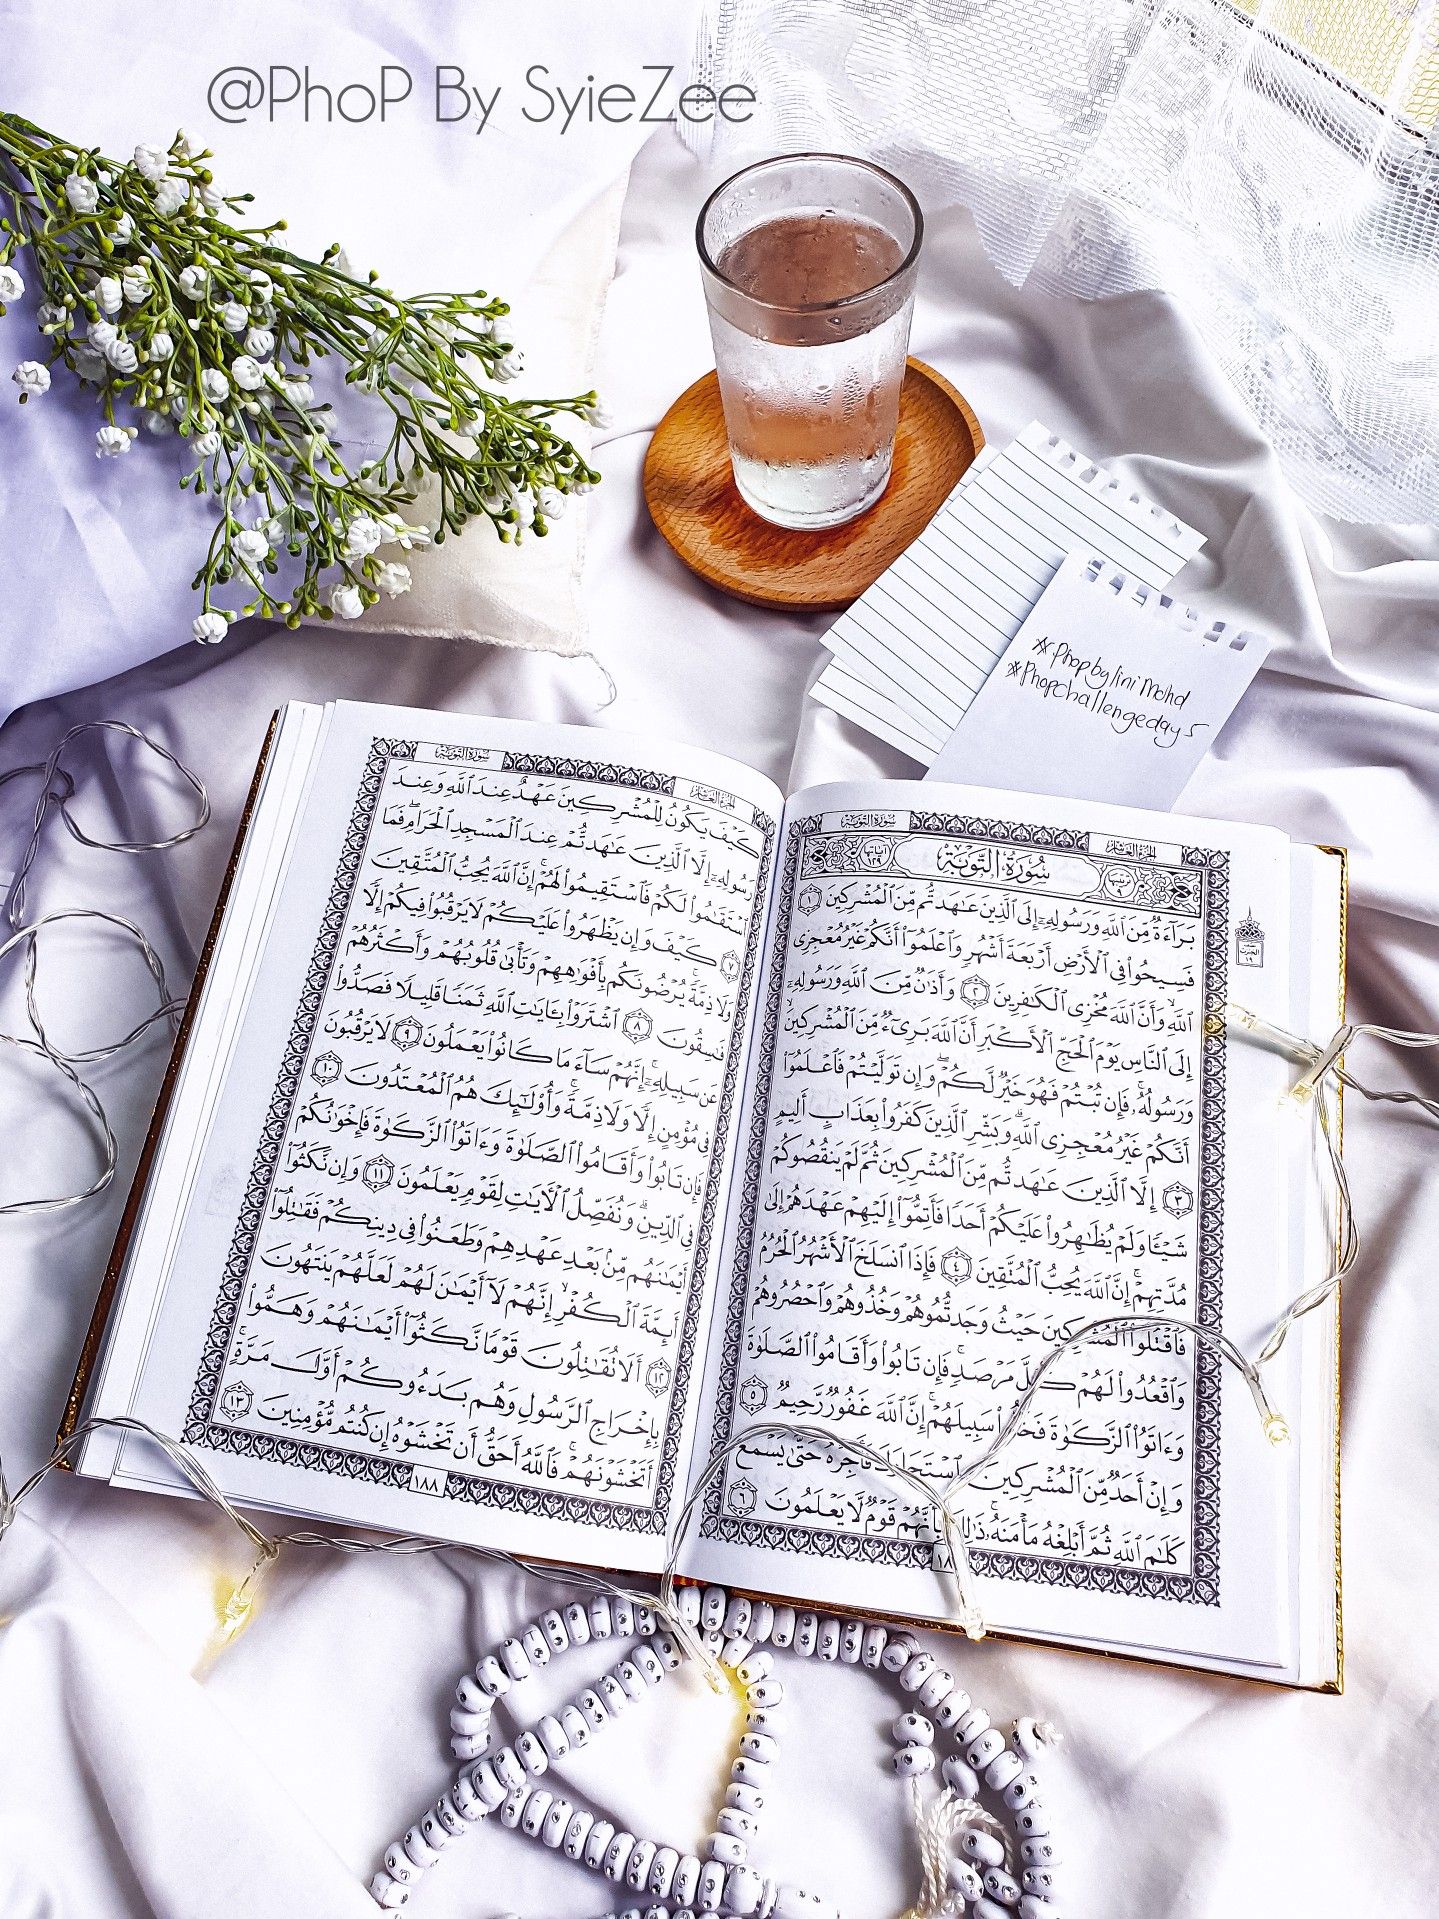 @PhoP By SyieZee
#Phopbylini Mohd
#Phopchallengeday5
الجزء العاشر
سورة التوبة
سُورَةُ التَّوْبَةِ
آياتها ١٢٩
بَرَآءَةٌ مِّنَ ٱللَّهِ وَرَسُولِهِۦٓ إِلَى ٱلَّذِينَ عَـٰهَدتُّم مِّنَ ٱلْمُشْرِكِينَ ١
فَسِيحُوا۟ فِى ٱلْأَرْضِ أَرْبَعَةَ أَشْهُرٍ وَٱعْلَمُوٓا۟ أَنَّكُمْ غَيْرُ مُعْجِزِى
ٱللَّهِ وَأَنَّ ٱللَّهَ مُخْزِى ٱلْكَـٰفِرِينَ ٢ وَأَذَٰنٌ مِّنَ ٱللَّهِ وَرَسُولِهِۦٓ
إِلَى ٱلنَّاسِ يَوْمَ ٱلْحَجِّ ٱلْأَكْبَرِ أَنَّ ٱللَّهَ بَرِىٓءٌ مِّنَ ٱلْمُشْرِكِينَ
وَرَسُولُهُۥ فَإِن تُبْتُمْ فَهُوَ خَيْرٌ لَّكُمْ وَإِن تَوَلَّيْتُمْ فَٱعْلَمُوٓا۟
أَنَّكُمْ غَيْرُ مُعْجِزِى ٱللَّهِ وَبَشِّرِ ٱلَّذِينَ كَفَرُوا۟ بِعَذَابٍ أَلِيمٍ
٣ إِلَّا ٱلَّذِينَ عَـٰهَدتُّم مِّنَ ٱلْمُشْرِكِينَ ثُمَّ لَمْ يَنقُصُوكُمْ
شَيْـًٔا وَلَمْ يُظَـٰهِرُوا۟ عَلَيْكُمْ أَحَدًا فَأَتِمُّوٓا۟ إِلَيْهِمْ عَهْدَهُمْ إِلَىٰ
مُدَّتِهِمْ إِنَّ ٱللَّهَ يُحِبُّ ٱلْمُتَّقِينَ ٤ فَإِذَا ٱنسَلَخَ ٱلْأَشْهُرُ ٱلْحُرُمُ
فَٱقْتُلُوا۟ ٱلْمُشْرِكِينَ حَيْثُ وَجَدتُّمُوهُمْ وَخُذُوهُمْ وَٱحْصُرُوهُمْ
وَٱقْعُدُوا۟ لَهُمْ كُلَّ مَرْصَدٍ فَإِن تَابُوا۟ وَأَقَامُوا۟ ٱلصَّلَوٰةَ
وَءَاتَوُا۟ ٱلزَّكَوٰةَ سَبِيلَهُمْ إِنَّ ٱللَّهَ غَفُورٌ رَّحِيمٌ ٥
وَإِنْ أَحَدٌ مِّنَ ٱلْمُشْرِكِينَ ٱسْتَجَارَكَ فَأَجِرْهُ حَتَّىٰ يَسْمَعَ
كَلَـٰمَ ٱللَّهِ ثُمَّ أَبْلِغْهُ مَأْمَنَهُۥ ذَٰلِكَ بِأَنَّهُمْ قَوْمٌ لَّا يَعْلَمُونَ ٦
الجزء العاشر
سورة التوبة
كَيْفَ يَكُونُ لِلْمُشْرِكِينَ عَهْدٌ عِندَ ٱللَّهِ وَعِندَ
رَسُولِهِۦٓ إِلَّا ٱلَّذِينَ عَـٰهَدتُّمْ عِندَ ٱلْمَسْجِدِ ٱلْحَرَامِ فَمَا
ٱسْتَقَـٰمُوا۟ لَكُمْ فَٱسْتَقِيمُوا۟ لَهُمْ إِنَّ ٱللَّهَ يُحِبُّ ٱلْمُتَّقِينَ
٧ كَيْفَ وَإِن يَظْهَرُوا۟ عَلَيْكُمْ لَا يَرْقُبُوا۟ فِيكُمْ إِلًّا
وَلَا ذِمَّةً يُرْضُونَكُم بِأَفْوَٰهِهِمْ وَتَأْبَىٰ قُلُوبُهُمْ وَأَكْثَرُهُمْ
فَـٰسِقُونَ ٨ ٱشْتَرَوْا۟ بِـَٔايَـٰتِ ٱللَّهِ ثَمَنًا قَلِيلًا فَصَدُّوا۟
عَن سَبِيلِهِۦٓ إِنَّهُمْ سَآءَ مَا كَانُوا۟ يَعْمَلُونَ ٩ لَا يَرْقُبُونَ
فِى مُؤْمِنٍ إِلًّا وَلَا ذِمَّةً وَأُو۟لَـٰٓئِكَ هُمُ ٱلْمُعْتَدُونَ ١٠
فَإِن تَابُوا۟ وَأَقَامُوا۟ ٱلصَّلَوٰةَ وَءَاتَوُا۟ ٱلزَّكَوٰةَ فَإِخْوَٰنُكُمْ
فِى ٱلدِّينِ وَنُفَصِّلُ ٱلْـَٔايَـٰتِ لِقَوْمٍ يَعْلَمُونَ ١١ وَإِن نَّكَثُوٓا۟
أَيْمَـٰنَهُم مِّنۢ بَعْدِ عَهْدِهِمْ وَطَعَنُوا۟ فِى دِينِكُمْ فَقَـٰتِلُوٓا۟
أَئِمَّةَ ٱلْكُفْرِ إِنَّهُمْ لَآ أَيْمَـٰنَ لَهُمْ لَعَلَّهُمْ يَنتَهُونَ
١٢ أَلَا تُقَـٰتِلُونَ قَوْمًا نَّكَثُوٓا۟ أَيْمَـٰنَهُمْ وَهَمُّوا۟
بِإِخْرَاجِ ٱلرَّسُولِ وَهُم بَدَءُوكُمْ أَوَّلَ مَرَّةٍ
أَتَخْشَوْنَهُمْ فَٱللَّهُ أَحَقُّ أَن تَخْشَوْهُ إِن كُنتُم مُّؤْمِنِينَ ١٣
١٨٨